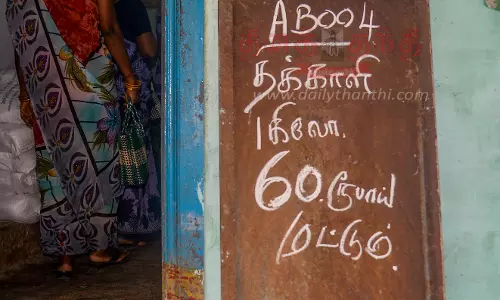 AB004
தக்காளி
www.dailythanthi.com
1கிலோ.
60.ரூபாய்
மட்டும்.